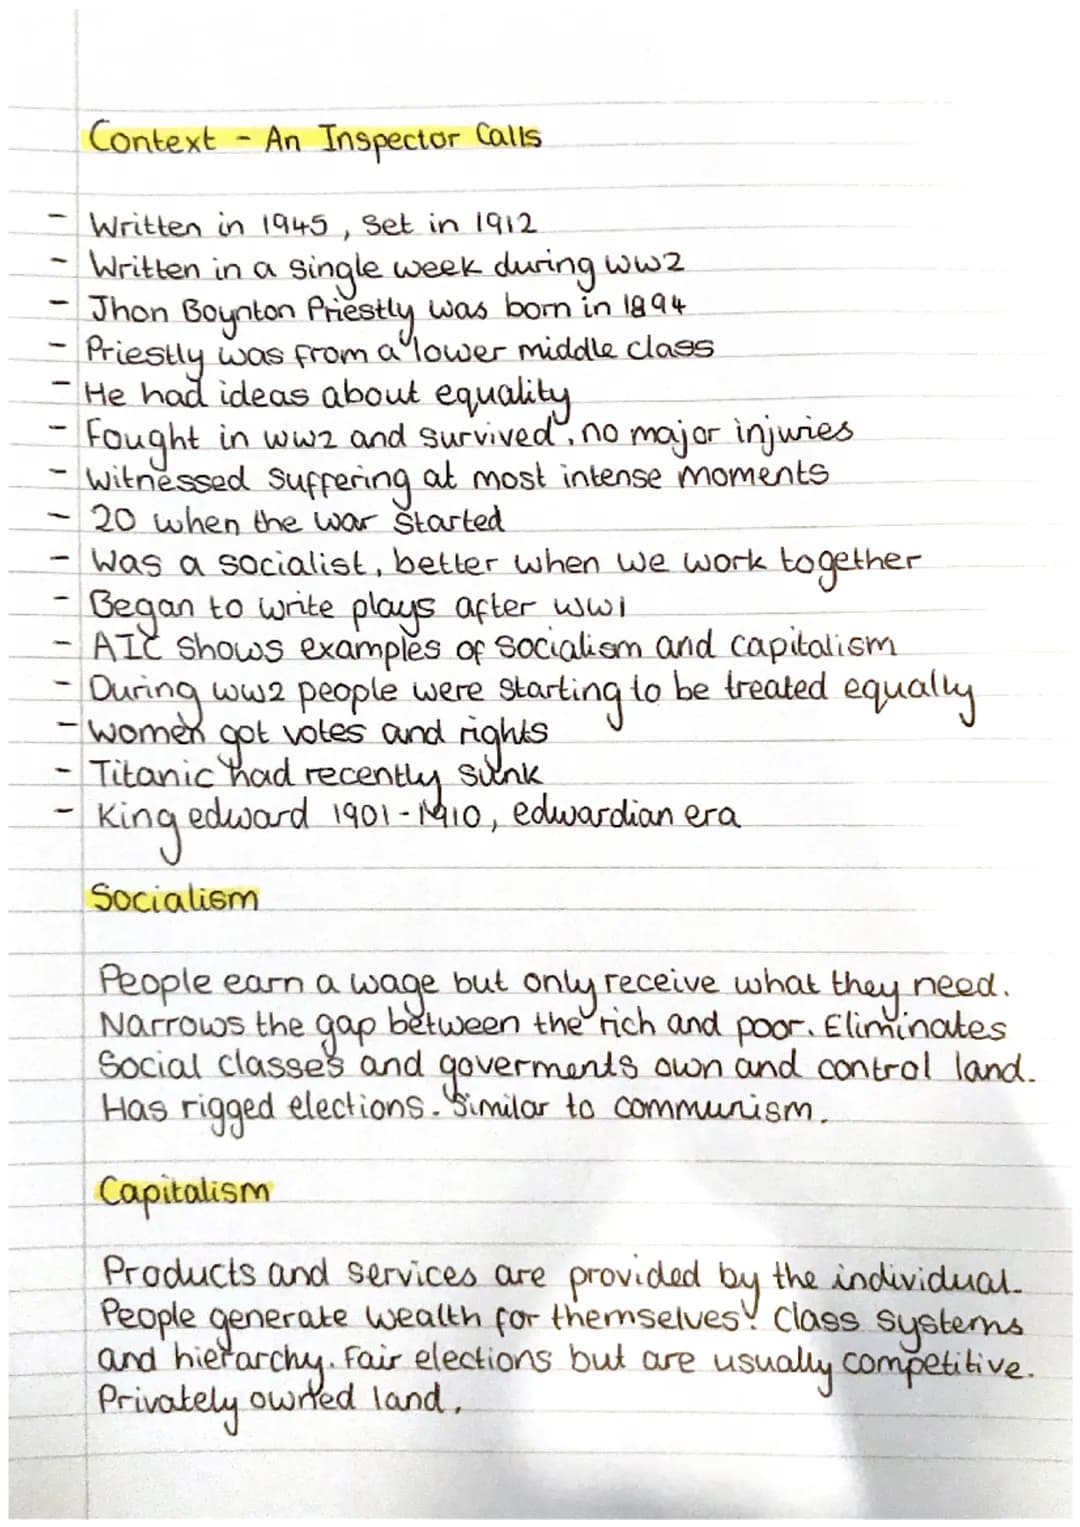 Context - An Inspector Calls
- Written in 1945, Set in 1912
- Written in a single week during ww2
- Jhon Boynton Priestly was born in 1894
- Priestly was from a lower middle class
- He had ideas about equality
- Fought in ww2 and survived, no major injuries
- Witnessed Suffering at most intense moments
- 20 when the war started
- Was a socialist, better when we work together
- Began to write plays after ww1
- AIC Shows examples of Socialism and capitalism
- During ww2 people were starting to be treated equally
- Women got votes and rights
- Titanic had recently sunk
- King edward 1901-1910, edwardian era
Socialism
People earn a wage but only receive what they need.
Narrows the gap between the rich and poor. Eliminates
Social classes and goverments own and control land.
Has rigged elections. Similar to communism.
Capitalism
Products and services are provided by the individual.
People generate wealth for themselves. Class systems
and hierarchy. Fair elections but are usually competitive.
Privately owned land.